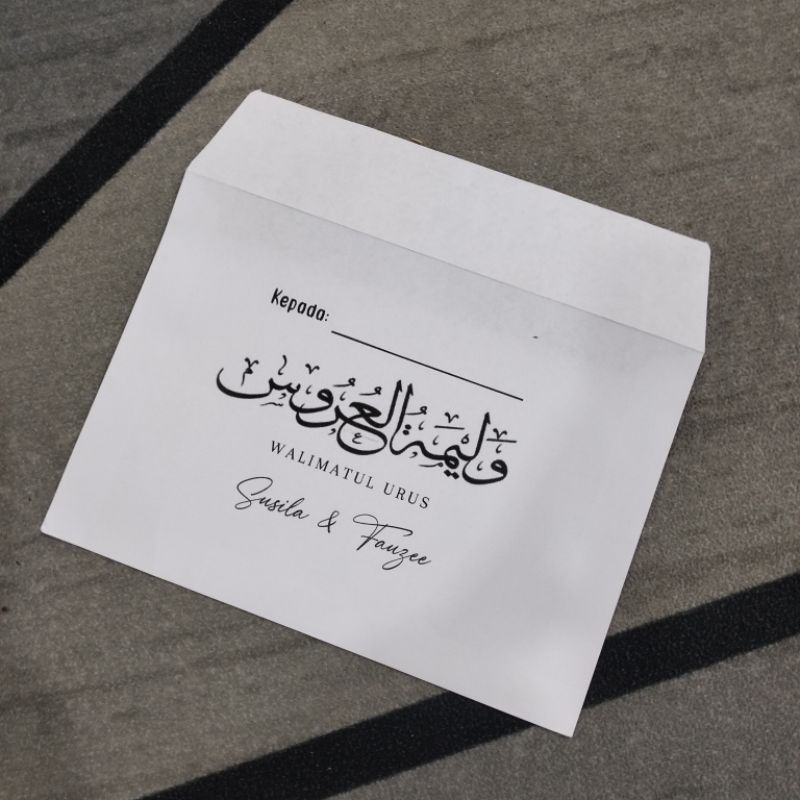 Kepada:
وَلِيْمَةُ الْعُرُوْسِ
WALIMATUL URUS
Susila & Fauzee